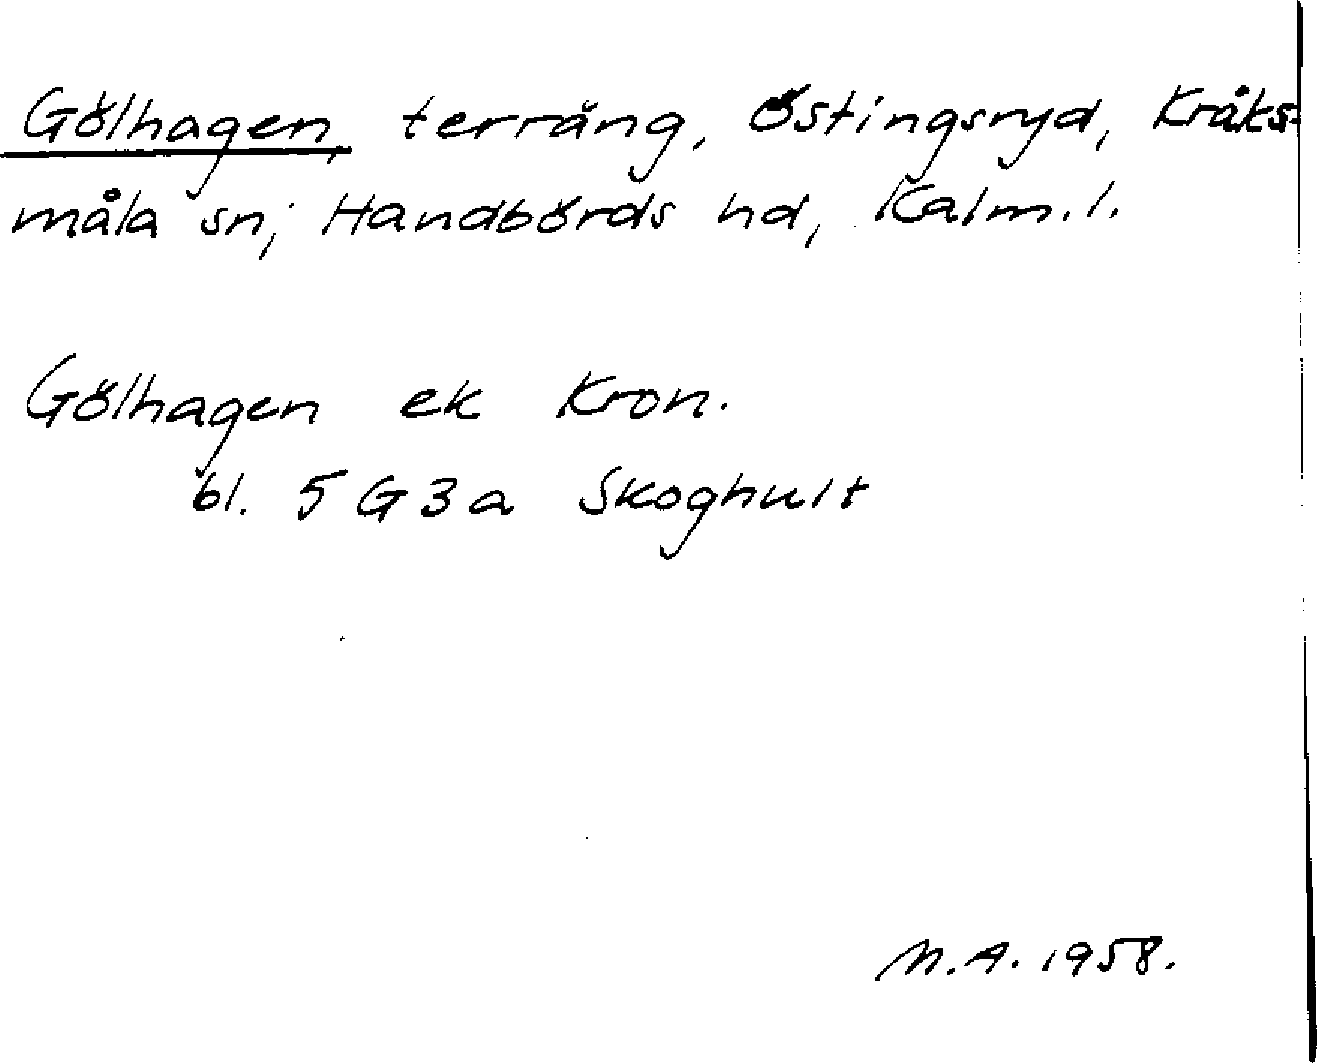 Gölhagen, terräng, Östingsryd, Kråks-
måla sn, Handbörds hd, Kalm. l.
Gölhagen ek Kron.
bl. 5 G 3 a Skoghult
M.A. 1958.